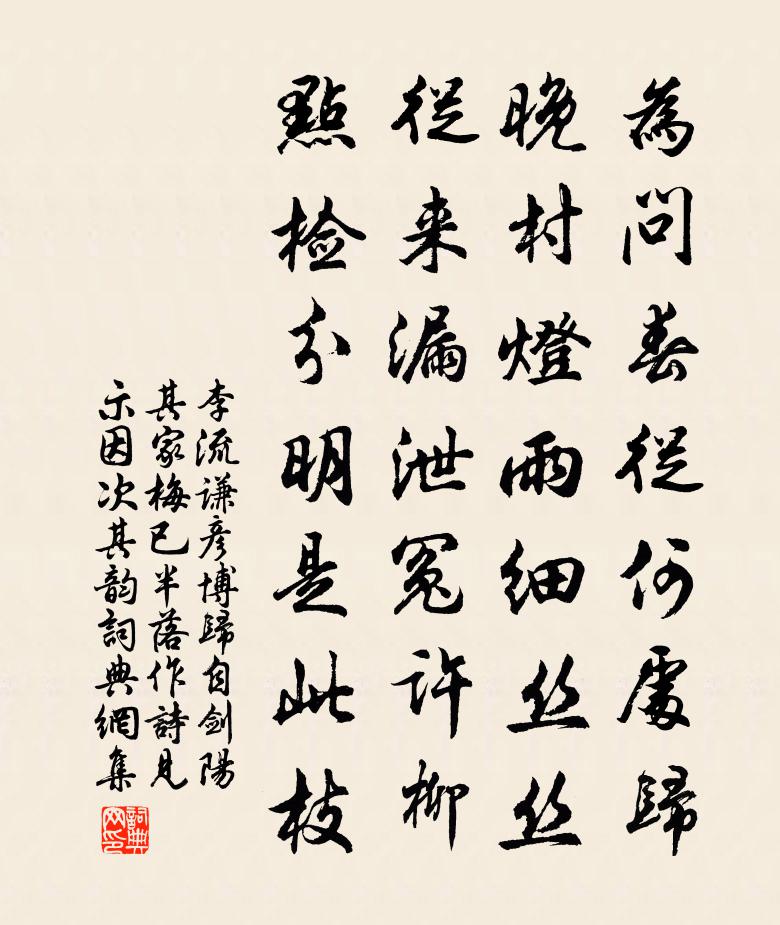 為問春從何處歸
晚村燈雨細丝丝
從来漏泄冤許柳
點检分明是此枝
李流谦彦博歸自劍陽
其家梅已半落作詩見
示因次其韵詞典網集
詞典网印